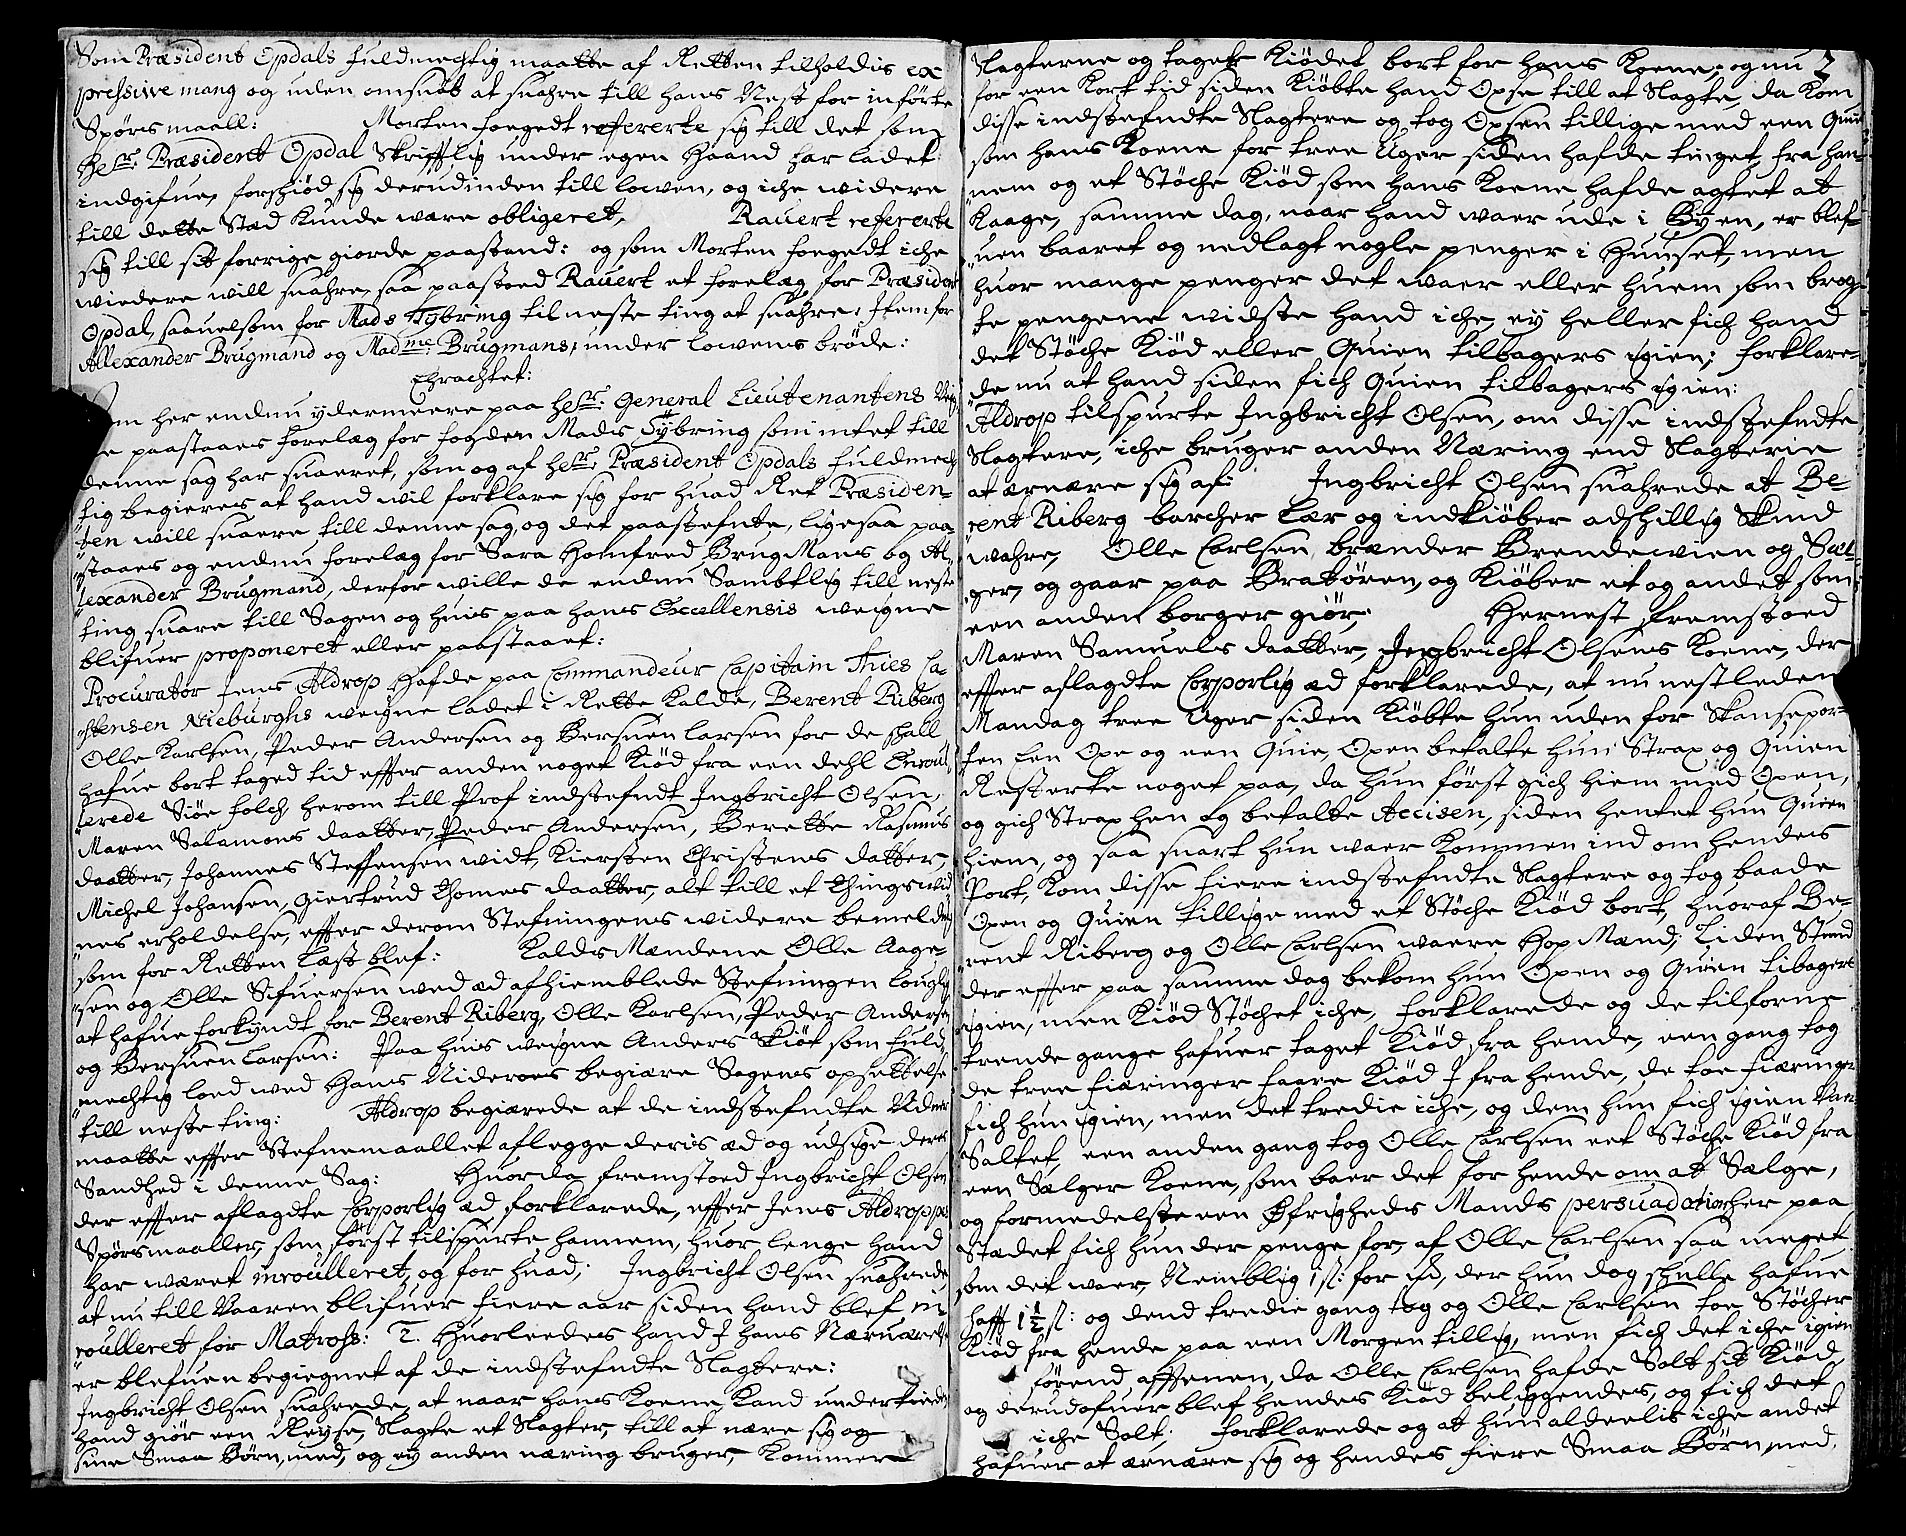 Som Præsident Opdals fuldmechtig maatte af Retten tilholdis ex
pressive mang og uden omsuöb at suahre till hans Nest for inførte
Spörsmaall: Morten foegedt refererte sig till det som
Hesr. Præsident Opdal Skrifftlig under egen Haand har ladet
indgifue, forschiød sig derudinden till lowen, og iche widere
till dette Stæd Kunde være obligeret, Rauert refererte
sig till sit forrige giorde paastand: og som Morten foegedt iche
wiedere will suahre, saa paastoed Rauert et forelæg for Præsident
Opdal, saauelsom for Mads Tybring til neste ting at suahre, Item for
Allexander Brugmand og Madme. Brugmans, under lowens bröde:
Ehrachtet:
Som her endnu ydermeere paa Hesr. General Lieutenantens Veig
ne paastaaes forelæg for fogden Madts Tybring som intet till
denne sag har suaeret, som og af Hesr. Præsident Opdals fuldmech
tig begieres at hand wil forklare sig for huad Ret Præsiden-
ten will suaere till denne sag, og det paastefnte, ligesaa paa
staaes og endnu forelæg for Sara Homfred BrugMans og Al
lexander Brugmand, derfor wille de endnu Sambtlig till neste
ting suare till Sagen og huis paa hans Excellensis weigne
blifuer proponeret eller paastaaet:
Procurator Jens Aldrop Hafde paa Commandeur Capitain Thies Ca
stensen Nieburghs weigne ladet i Rette Kalde, Berent Riberg
Olle Karlsen, Peder Andersen og Bersuen Larsen for de schall
hafue bort taged tid effter anden noget Kiød fra een dehl Enroul
lerede Siøe folch, herom till Prof indstefndt Ingbricht Olsen,
Maren Salamons daatter, Peder Andersen, Berette Rasmus
daatter, Johannes Steffensen widt, Kiersten Christens datter,
Michel Johansen, Giertrud Thomes daatter, alt till et Thingswid
nes erholdelse, effter derom Stefningens widere bemeldelse
som for Retten Læst blef: Kalds Mændene Olle Aage-
sen og Olle Sifuersen wed æd afhiemblede Stefningen Louglig
at hafue forkyndt for Berent Riberg, Olle Karlsen, Peder Andersen
og Bersuen Larsen: Paa huis weigne Anders Skiöt som fuld
mechtig loed wed Hans Nideroes begiære Sagens opsettelse
till neste ting: Aldrop begiærede at de indstefndte Vidner
maatte effter Stefnemaallet aflegge deris æd og udsige deres
Sandhed i denne Sag: Huorda fremstoed Ingbricht Olsen
der effter aflagdte Corporlig æd forklarede, effter Jens Aldropps
Spörsmaaller, som først tilspurte hannem, huor lenge hand
har wæret inroulleret, og for huad; Ingbricht Olsen suahrede
at nu till Vaaren blifuer fiere aar siden hand blef in
roulleret for Matross: 2. Huorledes hand I hans Næruærelse
er blefuen begiegnet af de indstefndte Slagtere:
Ingbricht Olsen suahrede, at naar hans Koene Kand undertiden
hand giör een Reyse, Slagte et Slagter, till at nære sig og
sine Smaa Börn, med, og ey anden næring bruger, Kommer
Slagterne og taget Kiödet bort for hans Koene, og nu 2
for een Kort tid siden Kiöbte hand Oxse till at Slagte, da Kom
disse indstefndte Slagtere og tog Oxsen tillige med een Quie
som hans Koene for tree Uger siden hafde tinget, fra han-
nem og et Stöche Kiöd som hans Koene hafde agtet at
Kaage, samme dag, naar hand waer ude i Byen, er blef-
uen baaret og nedlagt nogle penger i Huuset, men
huor mange penger det waer eller huem som brog
te pengene widste hand iche, ey heller fich hand
det Stöche Kiöd eller Quien tilbagers igien; forklare-
de nu at hand siden fich Quien tilbagers igien:
Aldrop tilspurte Ingbricht Olsen, om disse indstefndte
Slagtere, iche bruger anden Næring end Slagterie
at ærnære sig af: Ingbricht Olsen suahrede at Be-
rent Riberg barcher Lær og indkiöber adschillig Skind
wahre, Olle Carlsen, brænder Brendewien og Sæl-
ger, og gaar paa Bratören, og Kiöber et og andet som
een anden borger giör, Hernest fremstoed
Maren Samuels daatter, Ingbricht Olsens Koene, der
effter aflagdte Corporlig æd forklarede, at nu nestleden
Mandag tree Uger siden Kiöbte hun uden for Skansepor-
ten Een Oxe og een Quie, Oxen betalte hun Strax og Quien
Resterte noget paa, da hun först gich hiem med Oxen,
og gich Strax hen og betalte Accisen, siden hentet hun Quien
hiem, og saa snart hun waer Kommen ind om hendes
Port, Kom disse fiere indstefndte Slagtere og tog baade
Oxen og Quien tillige med et Stöche Kiöd bort, huoraf Be-
rent Riberg og Olle Carlsen waere Hop Mænd; Liden Stund
der effter paa samme dag bekom hun Oxen og Quien tibagers
igien, men Kiöd Stöchet iche, forklarede og de tilforne
trende gange hafuer taget Kiöd fra hende, een gang tog
de tree fieringer faare Kiöd I fra hende, de toe fiæringer
fich hun igien, men det tredie iche, og dem hun fich igien waer
Saltet, een anden gang tog Olle Carlsen eet Stöche Kiöd fra
een Sælger Koene, som baer det for hende om at Sælge,
og formedelste een Øfrigheds Mands persuadation her paa
Stædet fich hun der penge for, af Olle Carlsen saa meget
som det waer, Nemblig 1 ß: for lb, der hun dog schulle hafue
hafft 1½ ß: og dend tredie gang tog og Olle Carlsen toe Stöcher
Kiöd fra hende paa een Morgen tillig, men fich det iche igien
förend afftenen, da Olle Carlsen hafde Solt sit Kiöd
og derudofuer blef hendes Kiöd beliggendes, og fich det
iche Solt; forklarede og at hun aldeelis iche andet
hafuer at ærnære sig og hendes fiere Smaa Börn med,